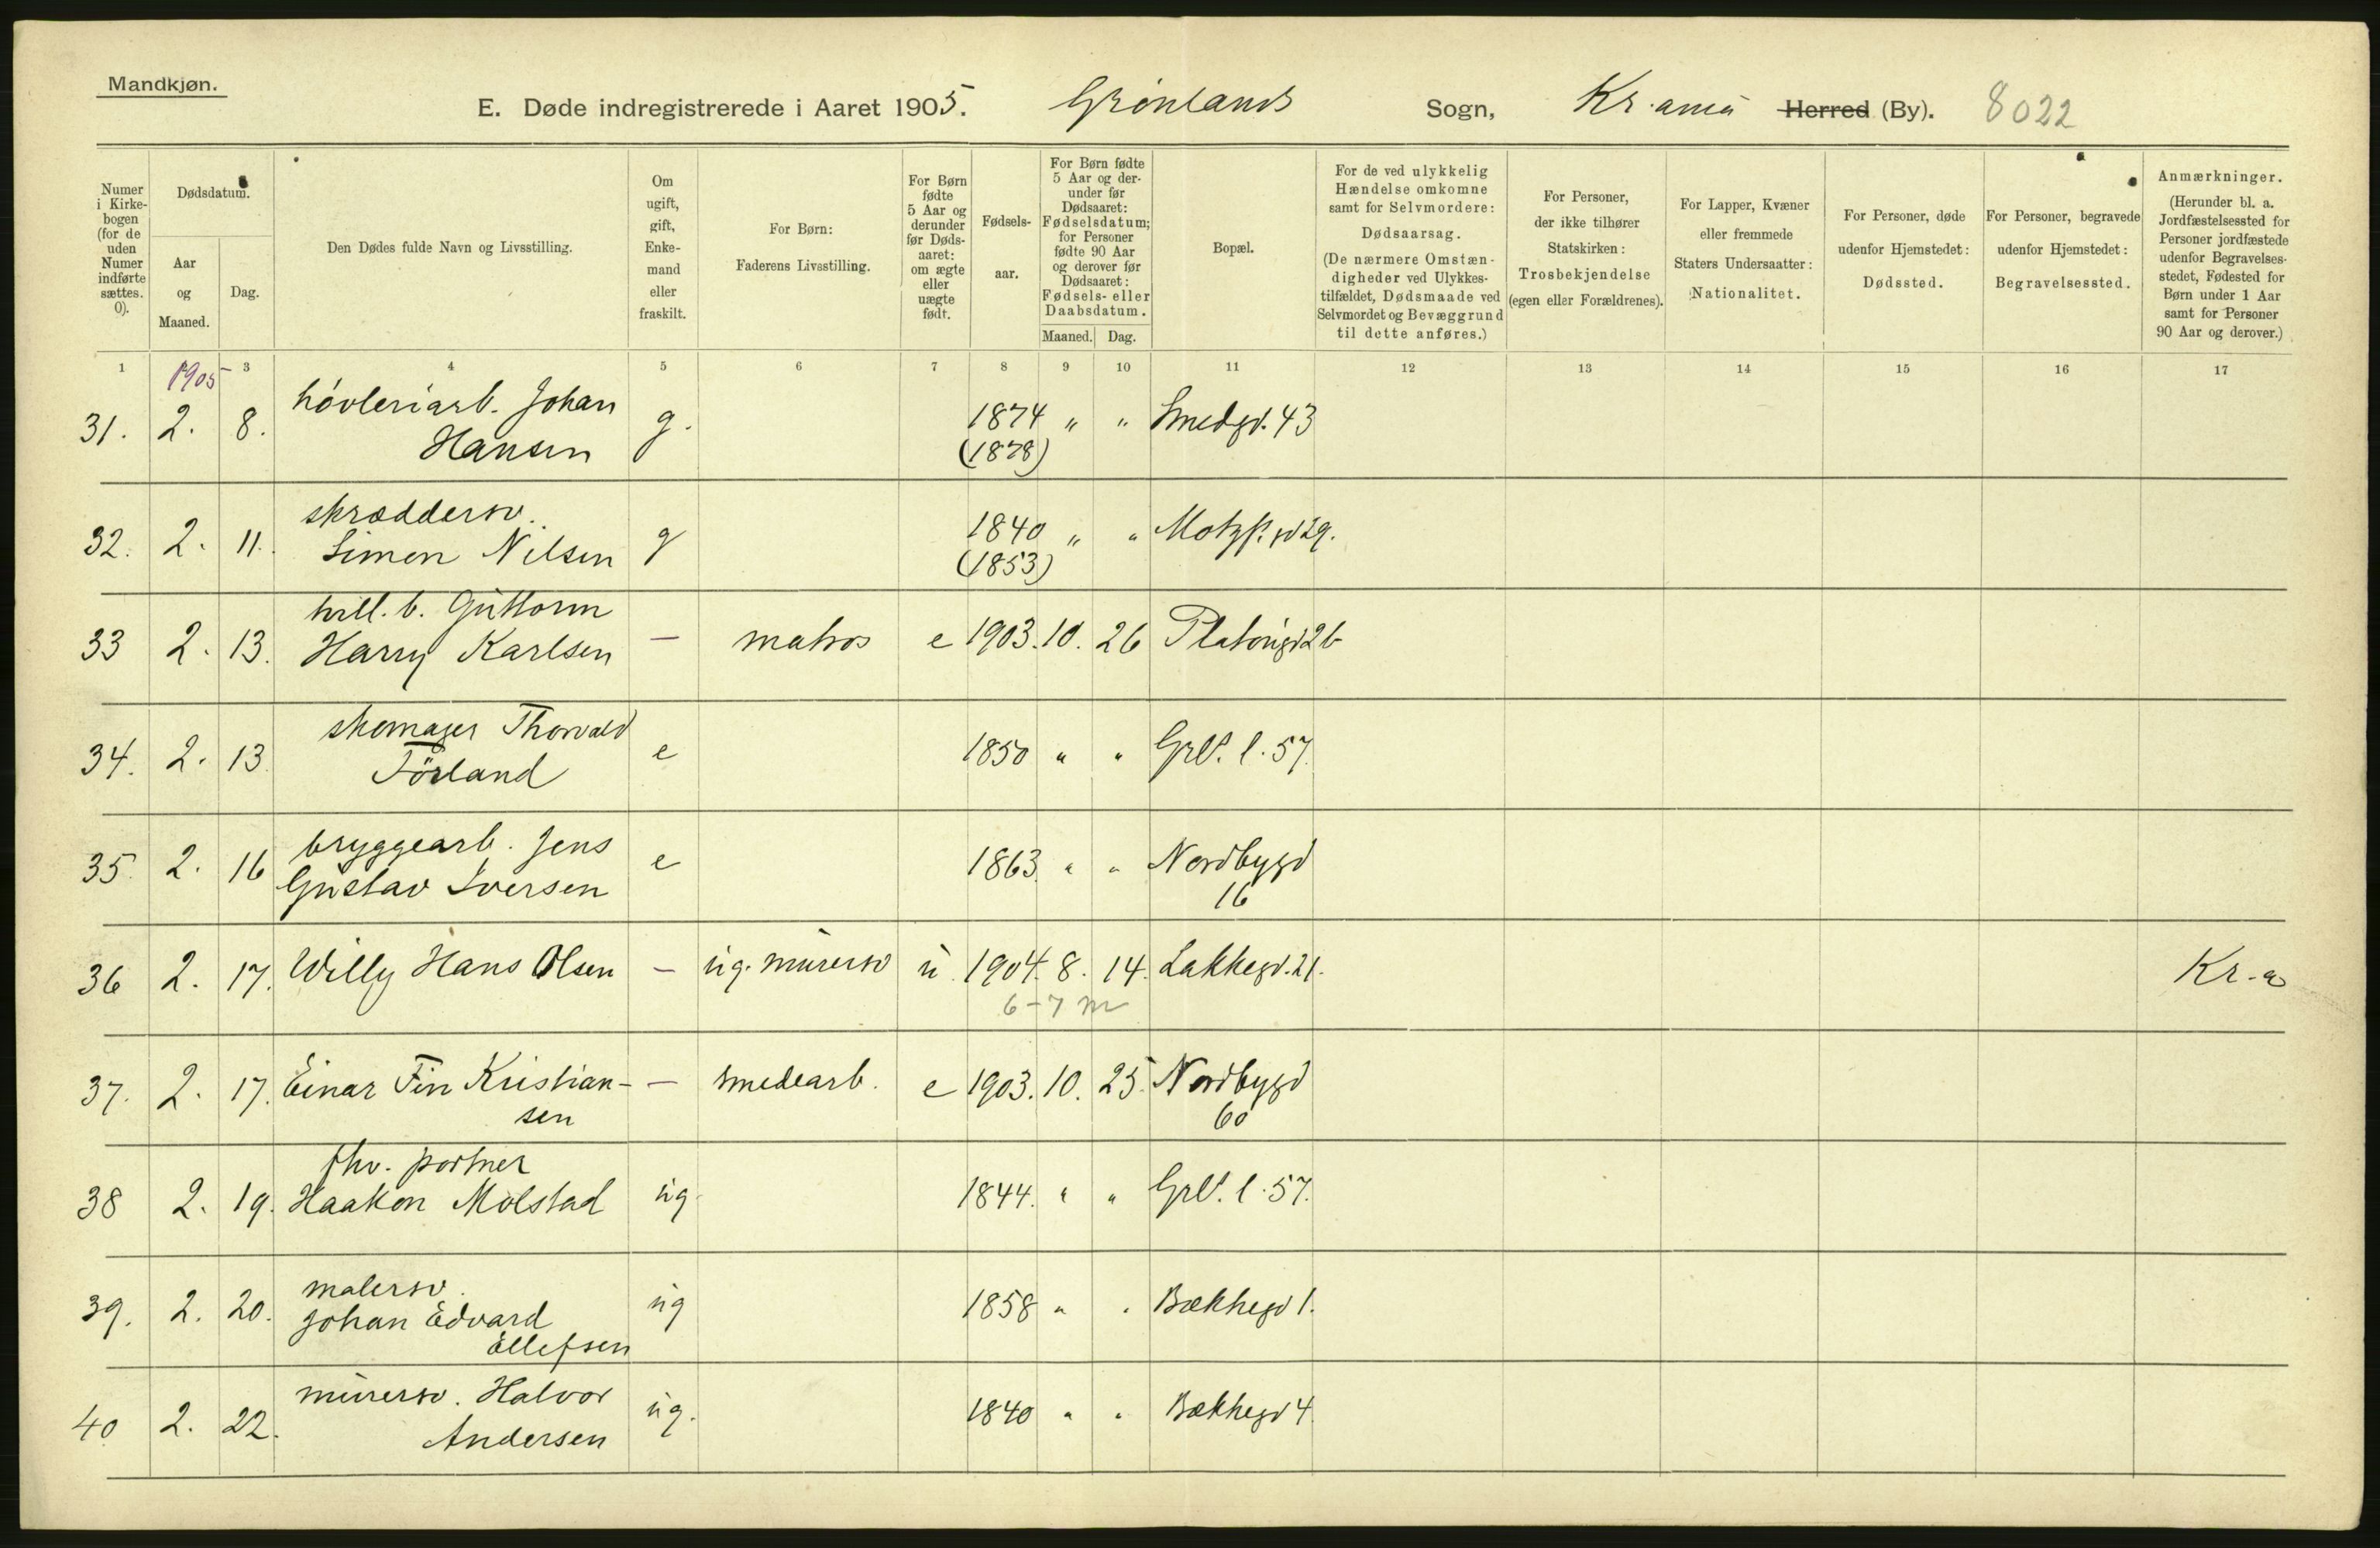 Mandkjøn.
E. Døde indregistrerede i Aaret 1905. Grønlands Sogn, Kr.ania Herred (By). 8022
Numer i Kirkebogen (for de uden Numer indførte sættes. 0).
Dødsdatum.
Aar og Maaned.
Dag.
Den Dødes fulde Navn og Livsstilling.
Om ugift, gift, Enkemand eller fraskilt.
For Børn: Faderens Livsstilling.
For Børn fødte 5 Aar og derunder før Dødsaaret: om ægte eller uægte født.
Fødselsaar.
For Børn fødte 5 Aar og derunder før Dødsaaret: Fødselsdatum; for Personer fødte 90 Aar og derover før Dødsaaret: Fødsels- eller Daabsdatum.
Maaned. Dag.
Bopæl.
For de ved ulykkelig Hændelse omkomne samt for Selvmordere: Dødsaarsag. (De nærmere Omstændigheder ved Ulykkestilfældet, Dødsmaade ved Selvmordet og Bevæggrund til dette anføres.)
For Personer, der ikke tilhører Statskirken: Trosbekjendelse (egen eller Forældrenes).
For Lapper, Kvæner eller fremmede Staters Undersaatter: Nationalitet.
For Personer, døde udenfor Hjemstedet: Dødssted.
For Personer, begravede udenfor Hjemstedet: Begravelsessted.
Anmærkninger. (Herunder bl. a. Jordfæstelsessted for Personer jordfæstede udenfor Begravelsesstedet, Fødested for Børn under 1 Aar samt for Personer 90 Aar og derover.)
1 3 4 5 6 7 8 9 10 11 12 13 14 15 16 17
1905
31. 2. 8. høvleriarb. Johan Hansen g. 1874 (1878) " " Smedgd. 43
32. 2. 11. skræddersv. Simen Nilsen g 1840 (1853) " " Motzf. gd 29.
33 2. 13. tvill. b. Guttorm Harry Karlsen — matros e 1903. 10. 26 Platougd 26
34. 2. 13 skomager Thorvald Törland e 1850 " " Grl. l. 57.
35. 2. 16 bryggearb. Jens Gustav Iversen e 1863. " " Nordbygd 16
36 2. 17. Willy Hans Olsen — ug. murersv u. 1904. 8. 14. Lakkegd. 21. Kr-a
6-7 m
37. 2. 17. Einar Fin Kristiansen — smedearb. e 1903. 10. 25. Nordbygd 60
38 2. 19. fhv. portner Haakon Molstad ug. 1844. " " Grl. l. 57.
39. 2. 20. malersv. Johan Edvard Ellefsen ug 1858 " " Bækkegd 1.
40 2. 22. murersv. Halvor Andersen ug. 1840 " " Bækkegd 4